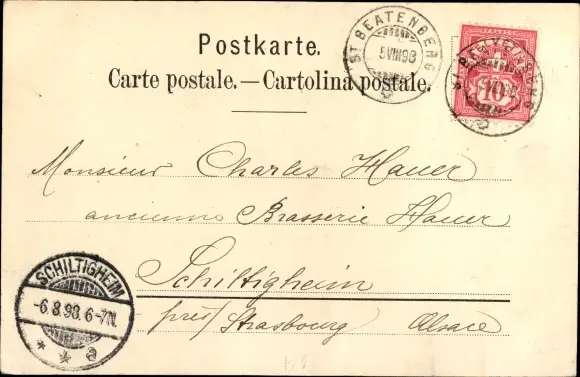 Postkarte.
Carte postale. — Cartolina postale.
ST BEATENBERG
5 VIII 98
10
Monsieur Charles Hauer
ancienne Brasserie Hauer
Schiltigheim
près/Strasbourg Alsace
SCHILTIGHEIM
-6.8.98.6-7N.
* * e